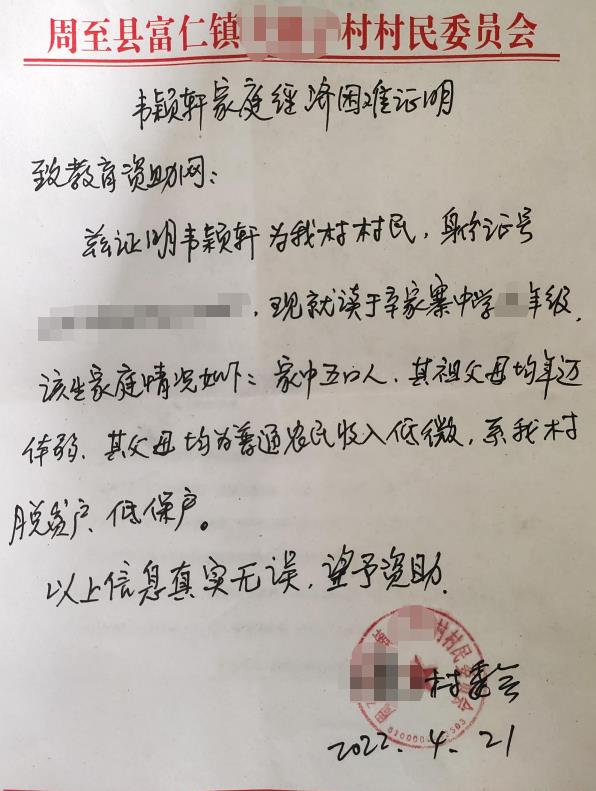 周至县富仁镇 村村民委员会
韦颖轩家庭经济困难证明
致教育资助网:
兹证明韦颖轩为我村村民,身份证号
,现就读于辛家寨中学 年级,
该生家庭情况如下:家中五口人,其祖父母均年迈
体弱、其父母均为普通农民收入低微,系我村
脱贫户、低保户。
以上信息真实无误,望予资助.
村村民委员会
村委会
2022.4.21